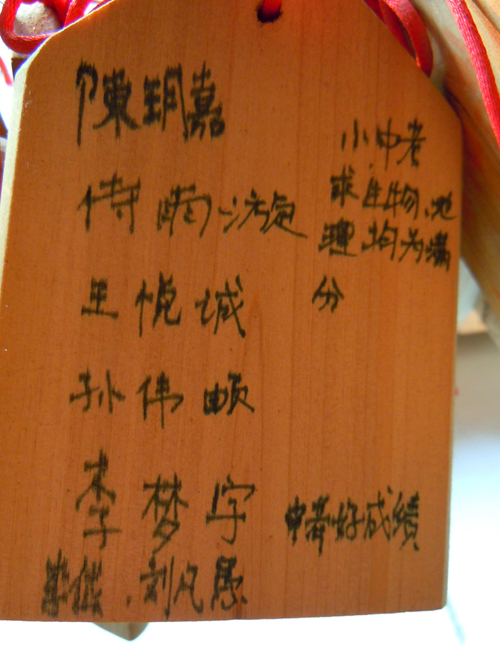 陳玥嘉
侍雨
王悦诚
孙伟
李梦宇
刘凡
小中考
求生物、地
理均为满
分
中考好成绩